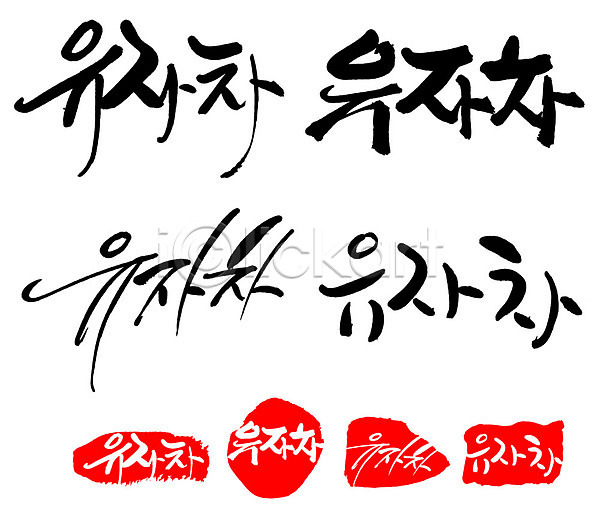 유자차 유자차
i@lickart
유자차 유자차
유자차 유자차 유자차 유자차